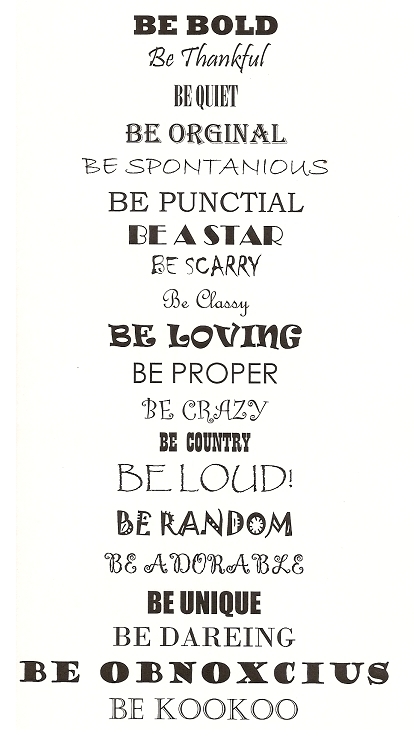 BE BOLD
Be Thankful
BE QUIET
BE ORGINAL
BE SPONTANIOUS
BE PUNCTIAL
BE A STAR
BE SCARRY
Be Classy
BE LOVING
BE PROPER
BE CRAZY
BE COUNTRY
BE LOUD!
BE RANDOM
BE ADORABLE
BE UNIQUE
BE DAREING
BE OBNOXCIUS
BE KOOKOO